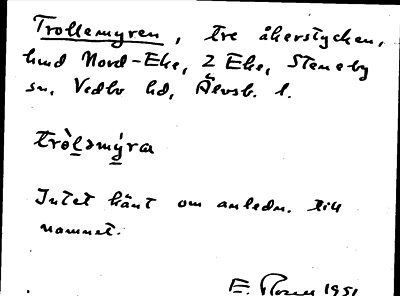 Trollemyren, tre åkerstycken,
hmd Nord-Eke, 2 Eke, Steneby
sn, Vedbo hd, Älvsb. l.
trò̀lǝmýra
Intet känt om anledn. till
namnet.
E. Rosen 1951